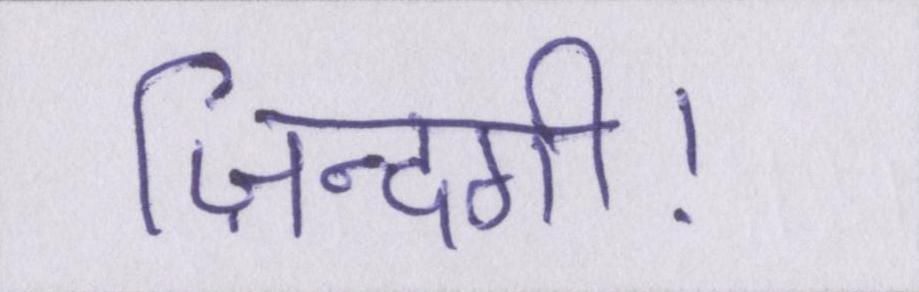 ज़िन्दगी!